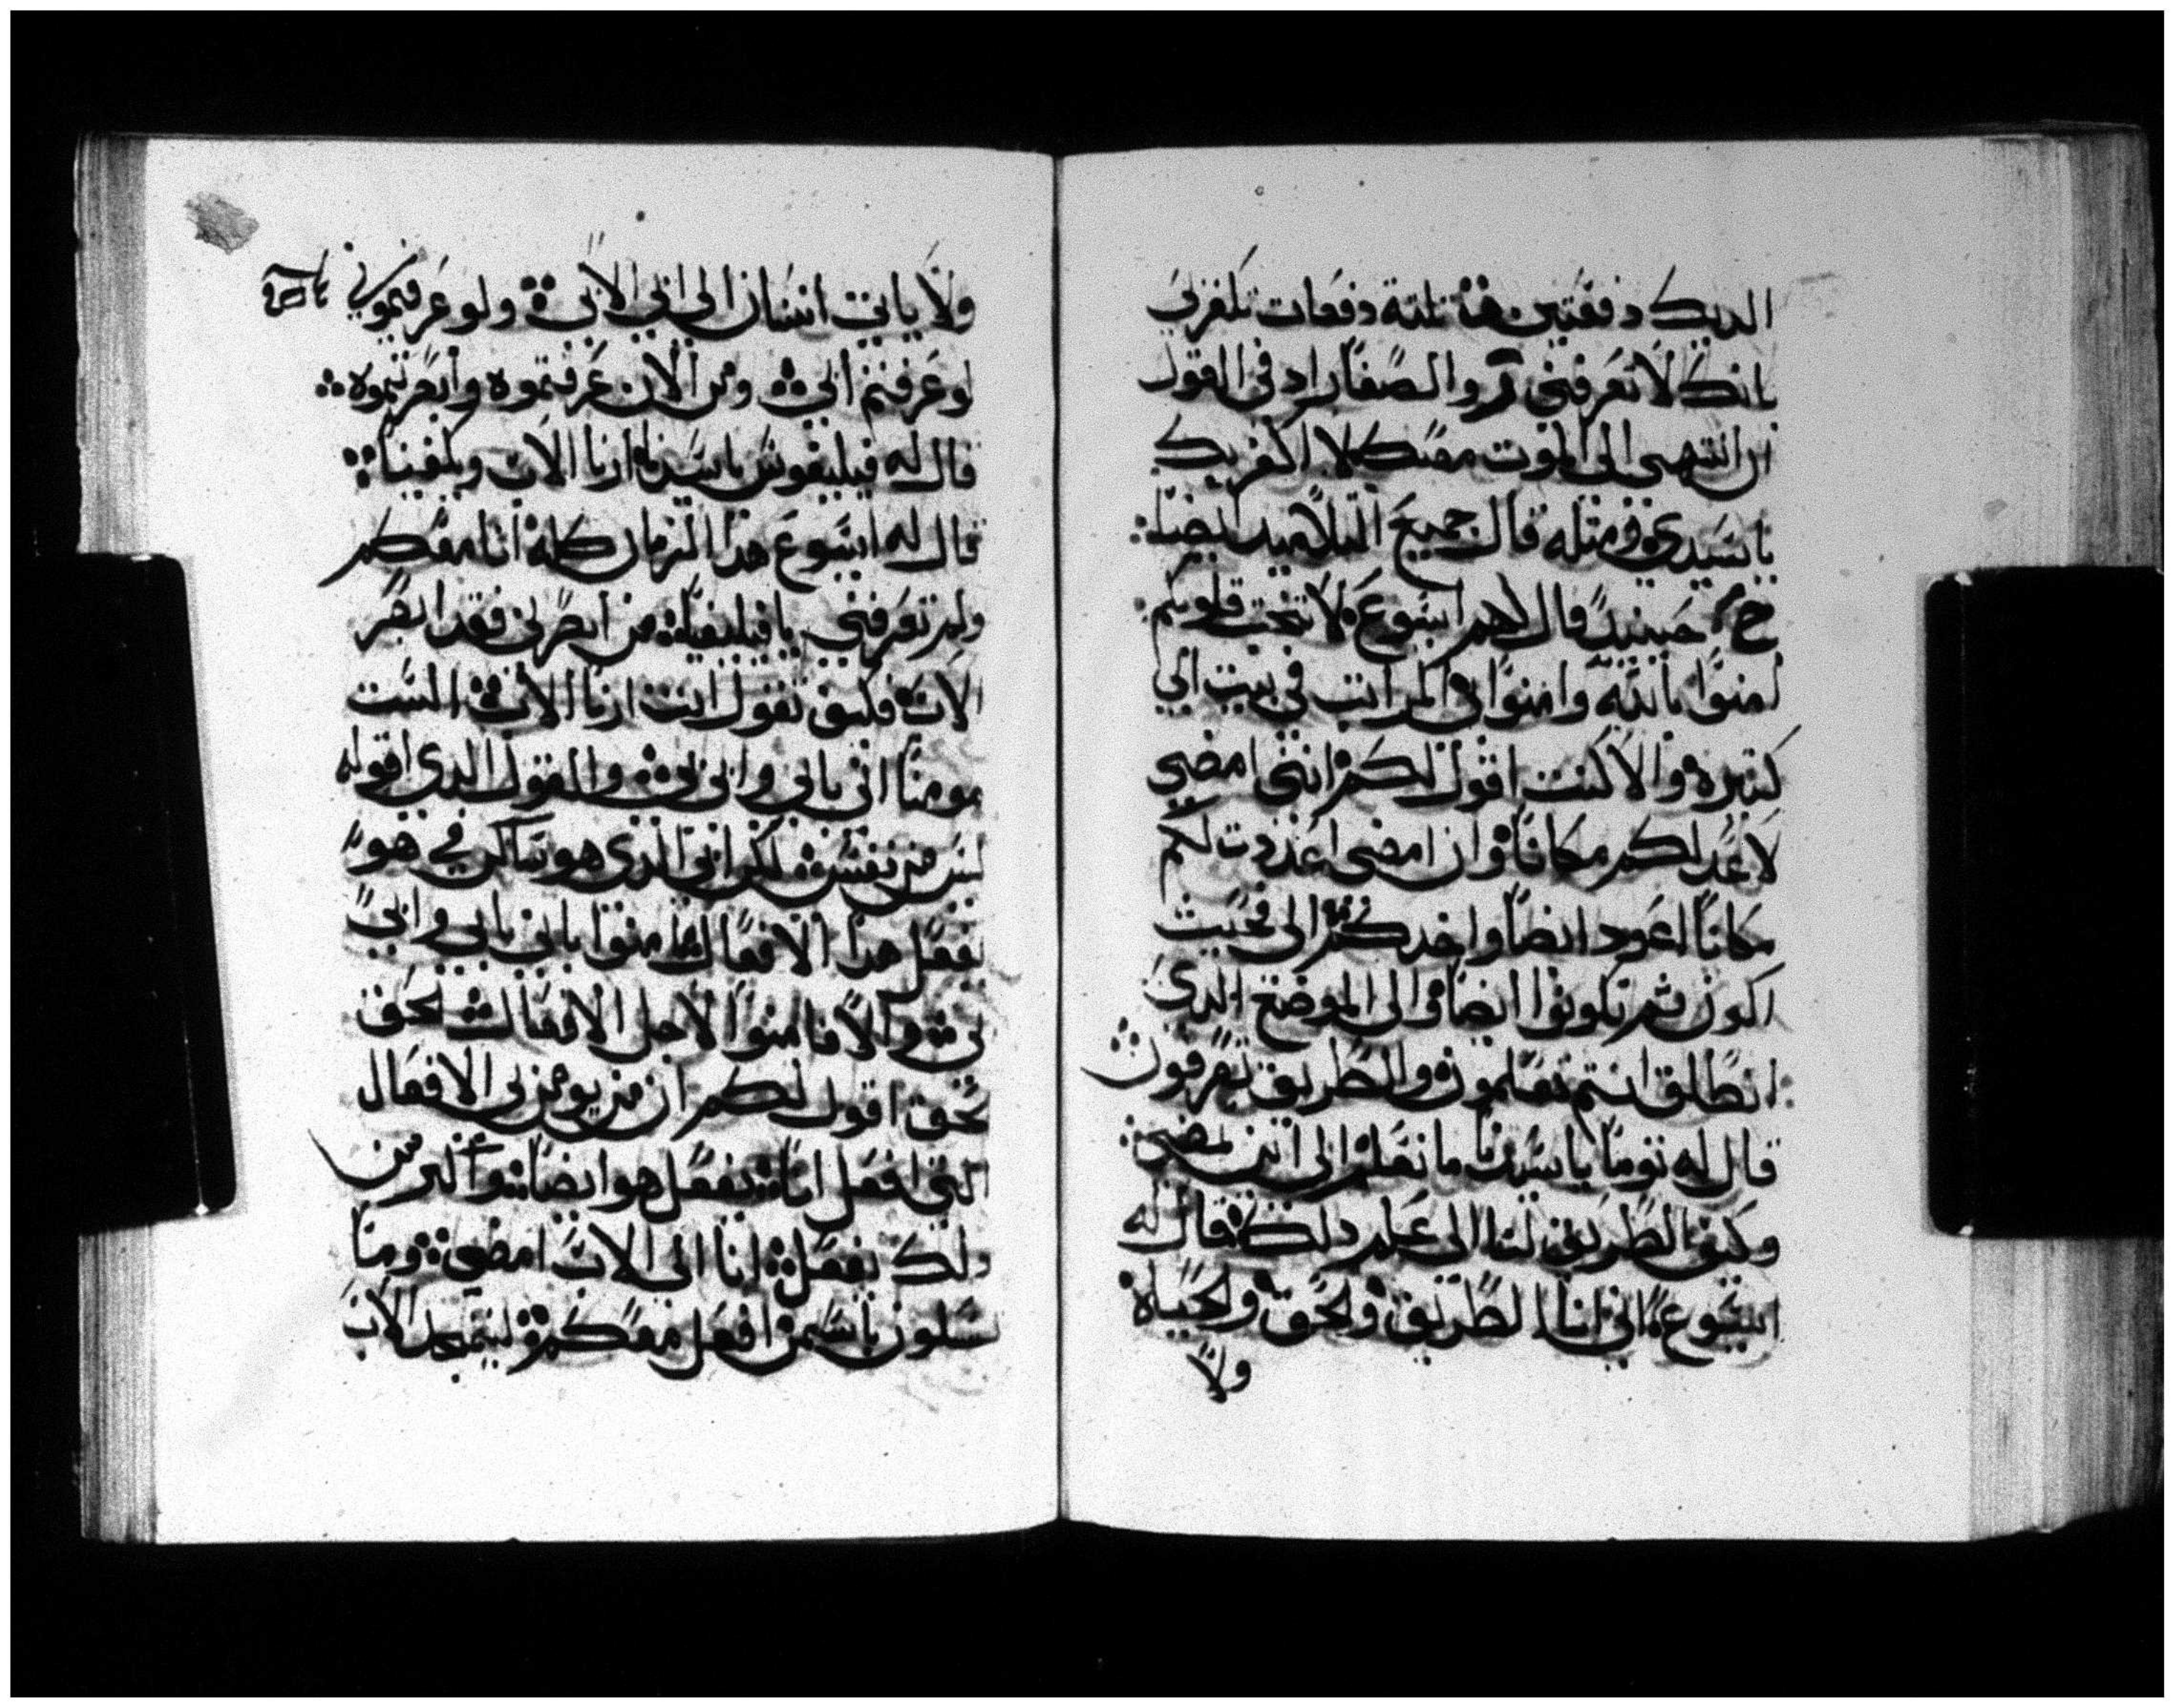 الديك دفعتين ثلثة دفعات تكفر بي
بانك لا تعرفني والصفا زاد في القول
ان انتهى الى الموت معك لا اكفر بك
يا سيدي ومثله قال جميع التلاميد ايضا
حينيد قال لهم ايسوع لا تتخت قلوبكم
امنوا بالله وامنوا بي المراتب في بيت ابي
كتيره والا كنت اقول لكم انني امضي
لاعد لكم مكانا وان امضي اعددت لكم
مكانا اعود ايضا واخدكم الى فحيت
اكون تم تكونوا ايضا والى الموضع الدي
انطلق انتم تعلمون والطريق تعرفون
قال له توما يا سيدنا ما نعلم الى اين تمضي
وكيف الطريق لنا الى علم دلك قال له
ايسوع اني انا الطريق والحق والحياة
ولا
ولا ياتي انسان الى ابي الا بي ولو عرفتموني
لو عرفتم ابي ومن الان عرفتموه وابصرتموه
قال له فيليفوس يا سيدنا ارنا الاب ويكفينا
قال له ايسوع هدا الزمان كله انا معكم
ولم تعرفني يا فيليفه من ابصرني فقد ابصر
الاب فكيف تقول انت ارنا الاب الست
مومنا اني بابي وابي بي والقول الدي اقوله
ليس من نفسي لكن ابي الدي هو ساكن في هو
يفعل هدا الافعال امنوا باني بابي وابي
بي والا فامنوا لاجل الافعال الحق
الحق اقول لكم ان من يومن بي الافعال
التي افعل انا يفعل هو ايضا واكبر من
دلك يفعل انا الى الاب امضي وما
تسلون باسمي افعل معكم ليتمجد الاب